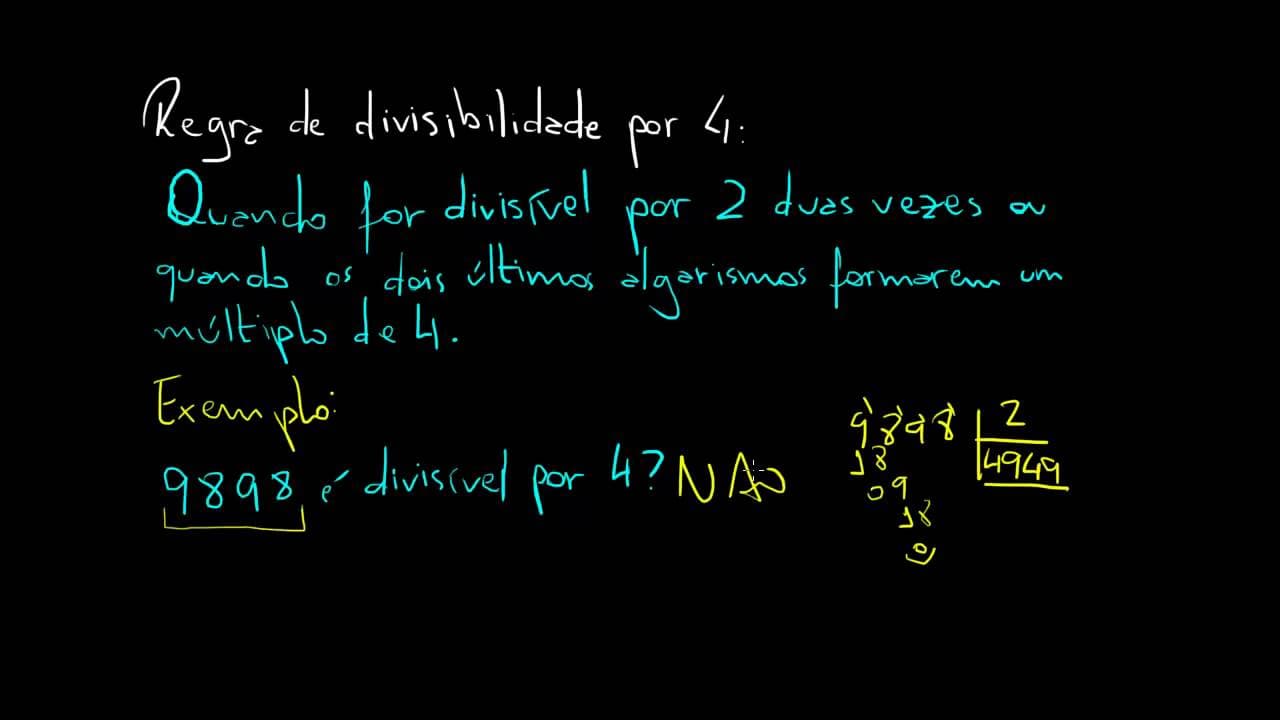 Regra de divisibilidade por 4:
Quando for divisível por 2 duas vezes ou
quando os dois últimos algarismos formarem um
múltiplo de 4.
Exemplo:
9898 é divisível por 4? NÃO
9898 2
18 4949
09
18
0